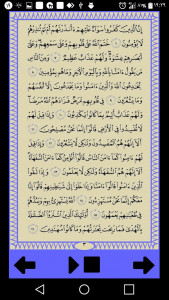 إِنَّ ٱلَّذِينَ كَفَرُوا۟ سَوَآءٌ عَلَيْهِمْ ءَأَنذَرْتَهُمْ أَمْ لَمْ تُنذِرْهُمْ
لَا يُؤْمِنُونَ ٦ خَتَمَ ٱللَّهُ عَلَىٰ قُلُوبِهِمْ وَعَلَىٰ سَمْعِهِمْ وَعَلَىٰٓ
أَبْصَٰرِهِمْ غِشَٰوَةٌ وَلَهُمْ عَذَابٌ عَظِيمٌ ٧ وَمِنَ ٱلنَّاسِ
مَن يَقُولُ ءَامَنَّا بِٱللَّهِ وَبِٱلْيَوْمِ ٱلْءَاخِرِ وَمَا هُم بِمُؤْمِنِينَ ٨
يُخَٰدِعُونَ ٱللَّهَ وَٱلَّذِينَ ءَامَنُوا۟ وَمَا يَخْدَعُونَ إِلَّآ أَنفُسَهُمْ
وَمَا يَشْعُرُونَ ٩ فِى قُلُوبِهِم مَّرَضٌ فَزَادَهُمُ ٱللَّهُ مَرَضًا
وَلَهُمْ عَذَابٌ أَلِيمٌۢ بِمَا كَانُوا۟ يَكْذِبُونَ ١٠ وَإِذَا قِيلَ لَهُمْ
لَا تُفْسِدُوا۟ فِى ٱلْأَرْضِ قَالُوٓا۟ إِنَّمَا نَحْنُ مُصْلِحُونَ ١١
أَلَآ إِنَّهُمْ هُمُ ٱلْمُفْسِدُونَ وَلَٰكِن لَّا يَشْعُرُونَ ١٢ وَإِذَا قِيلَ لَهُمْ
ءَامِنُوا۟ كَمَآ ءَامَنَ ٱلنَّاسُ قَالُوٓا۟ أَنُؤْمِنُ كَمَآ ءَامَنَ ٱلسُّفَهَآءُ
أَلَآ إِنَّهُمْ هُمُ ٱلسُّفَهَآءُ وَلَٰكِن لَّا يَعْلَمُونَ ١٣ وَإِذَا لَقُوا۟
ٱلَّذِينَ ءَامَنُوا۟ قَالُوٓا۟ ءَامَنَّا وَإِذَا خَلَوْا۟ إِلَىٰ شَيَٰطِينِهِمْ قَالُوٓا۟ إِنَّا
مَعَكُمْ إِنَّمَا نَحْنُ مُسْتَهْزِءُونَ ١٤ ٱللَّهُ يَسْتَهْزِئُ بِهِمْ وَيَمُدُّهُمْ
فِى طُغْيَٰنِهِمْ يَعْمَهُونَ ١٥ أُو۟لَٰٓئِكَ ٱلَّذِينَ ٱشْتَرَوُا۟ ٱلضَّلَٰلَةَ
بِٱلْهُدَىٰ فَمَا رَبِحَت تِّجَٰرَتُهُمْ وَمَا كَانُوا۟ مُهْتَدِينَ ١٦
٣